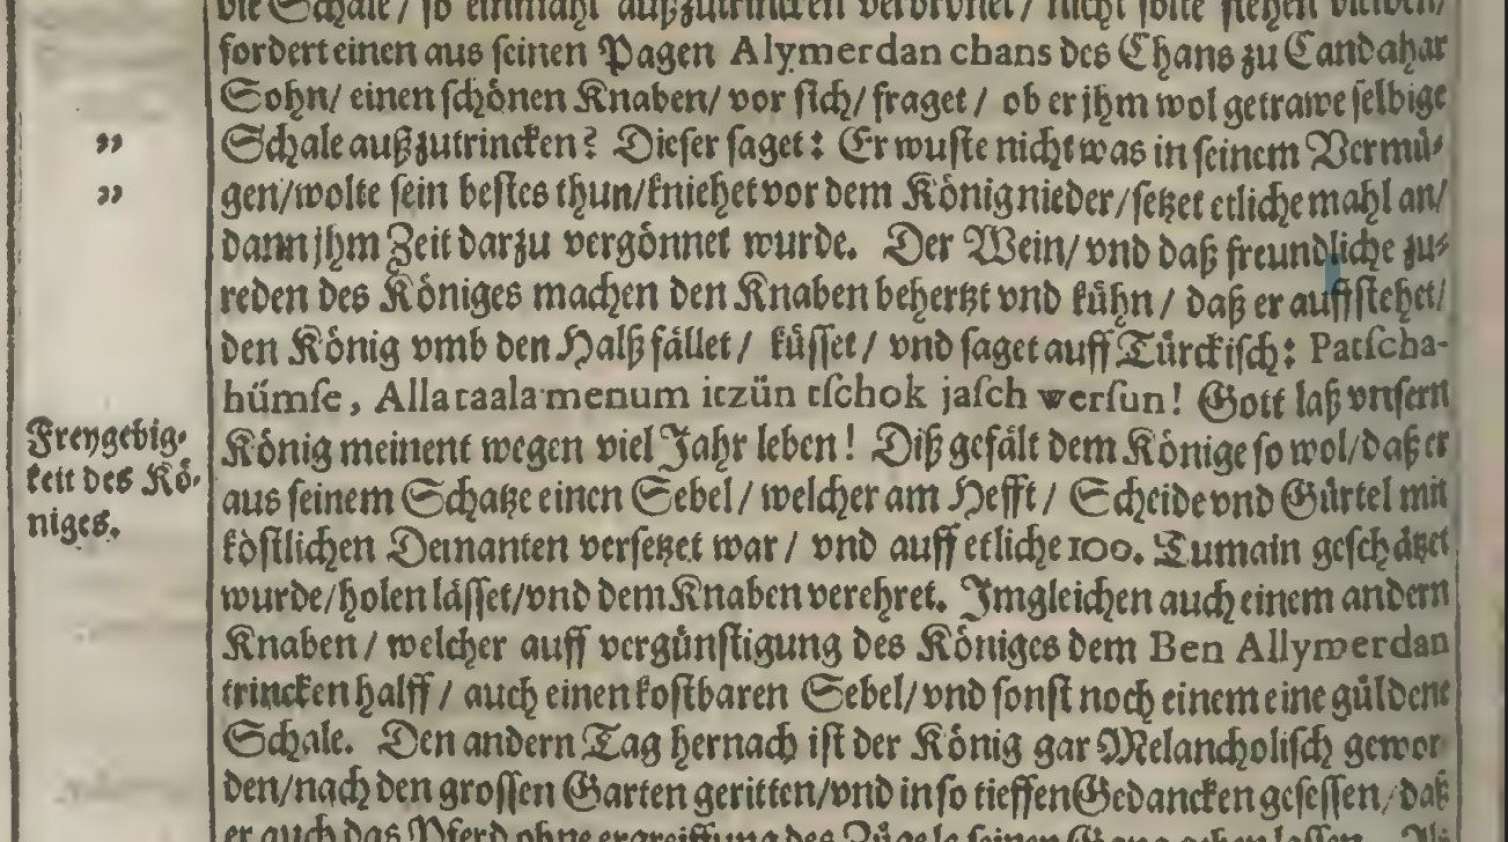 die Schale / so einmahl außzutrincken verordnet / nicht solte stehen bleiben /
fordert einen aus seinen Pagen Alymerdan chans des Chans zu Candahar
Sohn / einen schönen Knaben / vor sich / fraget / ob er jhm wol getrawe selbige
Schale außzutrincken? Dieser saget: Er wuste nicht was in seinem Vermü-
gen / wolte sein bestes thun / kniehet vor dem König nieder / setzet etliche mahl an /
dann jhm Zeit darzu vergönnet wurde. Der Wein / vnd daß freundliche zu-
reden des Königes machen den Knaben behertzt vnd kühn / daß er auffstehet /
den König vmb den Halß fället / küsset / vnd saget auff Türckisch: Patſcha-
hümſe, Alla taala menum itzün tſchok jaſch werſun! Gott laß vnsern
Freygebig-
keit des Kö-
niges.
König meinent wegen viel Jahr leben! Diß gefält dem Könige so wol / daß er
aus seinem Schatze einen Sebel / welcher am Hefft / Scheide vnd Gürtel mit
köstlichen Demanten versetzet war / vnd auff etliche 100. Tumain geschätzet
wurde / holen lässet / vnd dem Knaben verehret. Imgleichen auch einem andern
Knaben / welcher auff vergünstigung des Königes dem Ben Allymerdan
trincken halff / auch einen kostbaren Sebel / vnd sonst noch einem eine güldene
Schale. Den andern Tag hernach ist der König gar Melancholisch gewor-
den / nach den grossen Garten geritten / vnd in so tieffen Gedancken gesessen / daß
er auch das Pferd ohne ergreiffung des Zügels seinen Gang gehen lassen.